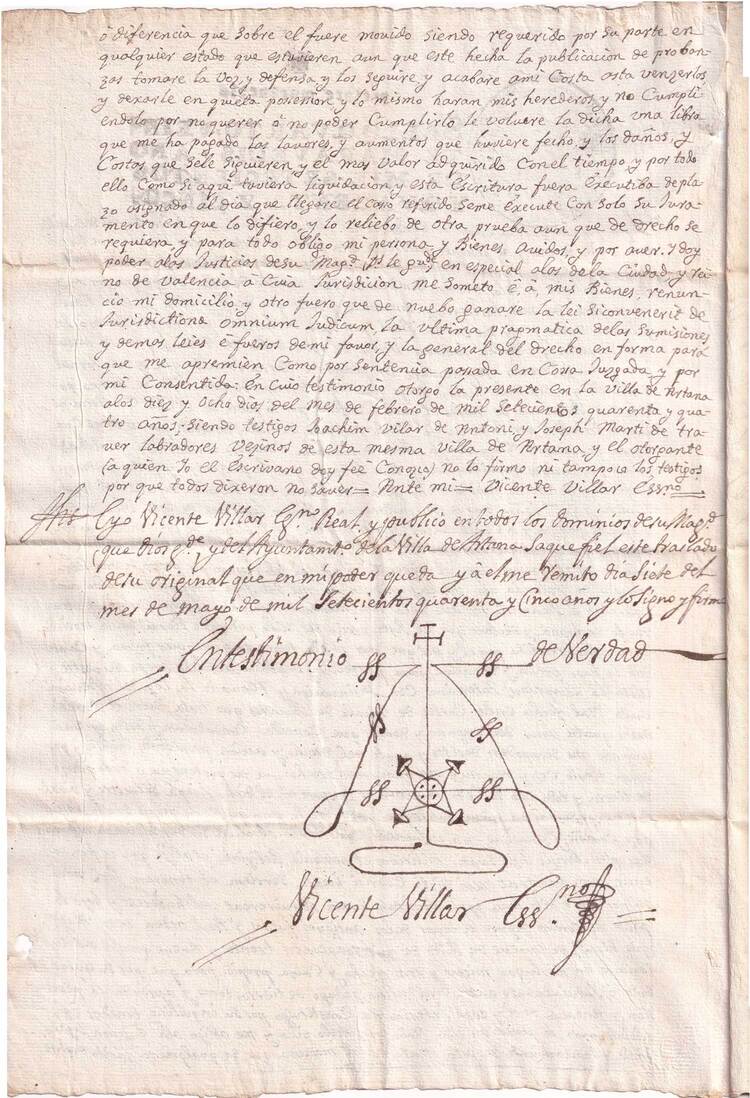 ò diferencia que sobre el fuere movido siendo requerido por su parte en
qualquier estado que estuvieren aun que este hecha la publicacion de proban-
zas tomare la voz, y defensa, y los seguire y acabare a mi costa asta venzerlos
y dexarle en quieta possession, y lo mismo haran mis herederos y no Cumpli-
endolo por no querer ò no poder Cumplirlo le volvere la dicha una libra
que me ha pagado las lavores, y aumentos que huviere fecho, y los daños, y
Costas que sele siguieren y el mas valor adquirido con el tiempo, y por todo
ello Como si aqui tuviera liquidacion, y esta Escritura fuera Executiba de pla-
zo asignado al dia que llegare el caso referido seme execute Con solo su Jura-
mento en que lo difiero, y lo reliebo de otra prueba aun que de drecho se
requiera y para todo obligo mi persona, y Bienes Avidos, y por aver. Y doy
poder alos Justicias de su Mag.d en especial alos de la Ciudad, y rei-
no de Valencia à Cuia Jurisdicion me Someto è à, mis Bienes, renun-
cio mi domicilio, y otro fuero que de nuebo ganare la lei si convenerit de
Jurisdictione omnium Judicum, la ultima pragmatica delas sumisiones
y demas leies è fueros de mi favor, y la general del drecho en forma para
que me apremien Como por sentencia passada en Cossa Juzgada, y por
mi Consentida: En cuio testimonio otorgo la presente en la villa de Artana
alos diez y ocho dias del mes de febrero de mil Setecientos quarenta y qua-
tro años, siendo testigos Joachim vilar de Antoni, y Joseph Marti de tra-
ver labradores vezinos de esta mesma villa de Artana, y el otorgante
(a quien Yo el Escrivano doy feè Conozco) no lo firmo ni tampoco los testigos
por que todos dixeron no saver = Ante mi = Vicente Villar Essno
Eyo Vicente Villar Essno Real, y publico en todos los dominios de su Mag.d
que Dios g.de y del Ayuntamto de la Villa de Artana saque fiel este traslado
de su original que en mi poder queda y à el me remito dia siete del
mes de mayo de mil Setecientos quarenta y Cinco años y lo signo y firmo
En testimonio de Verdad
Vicente Villar Ess.no